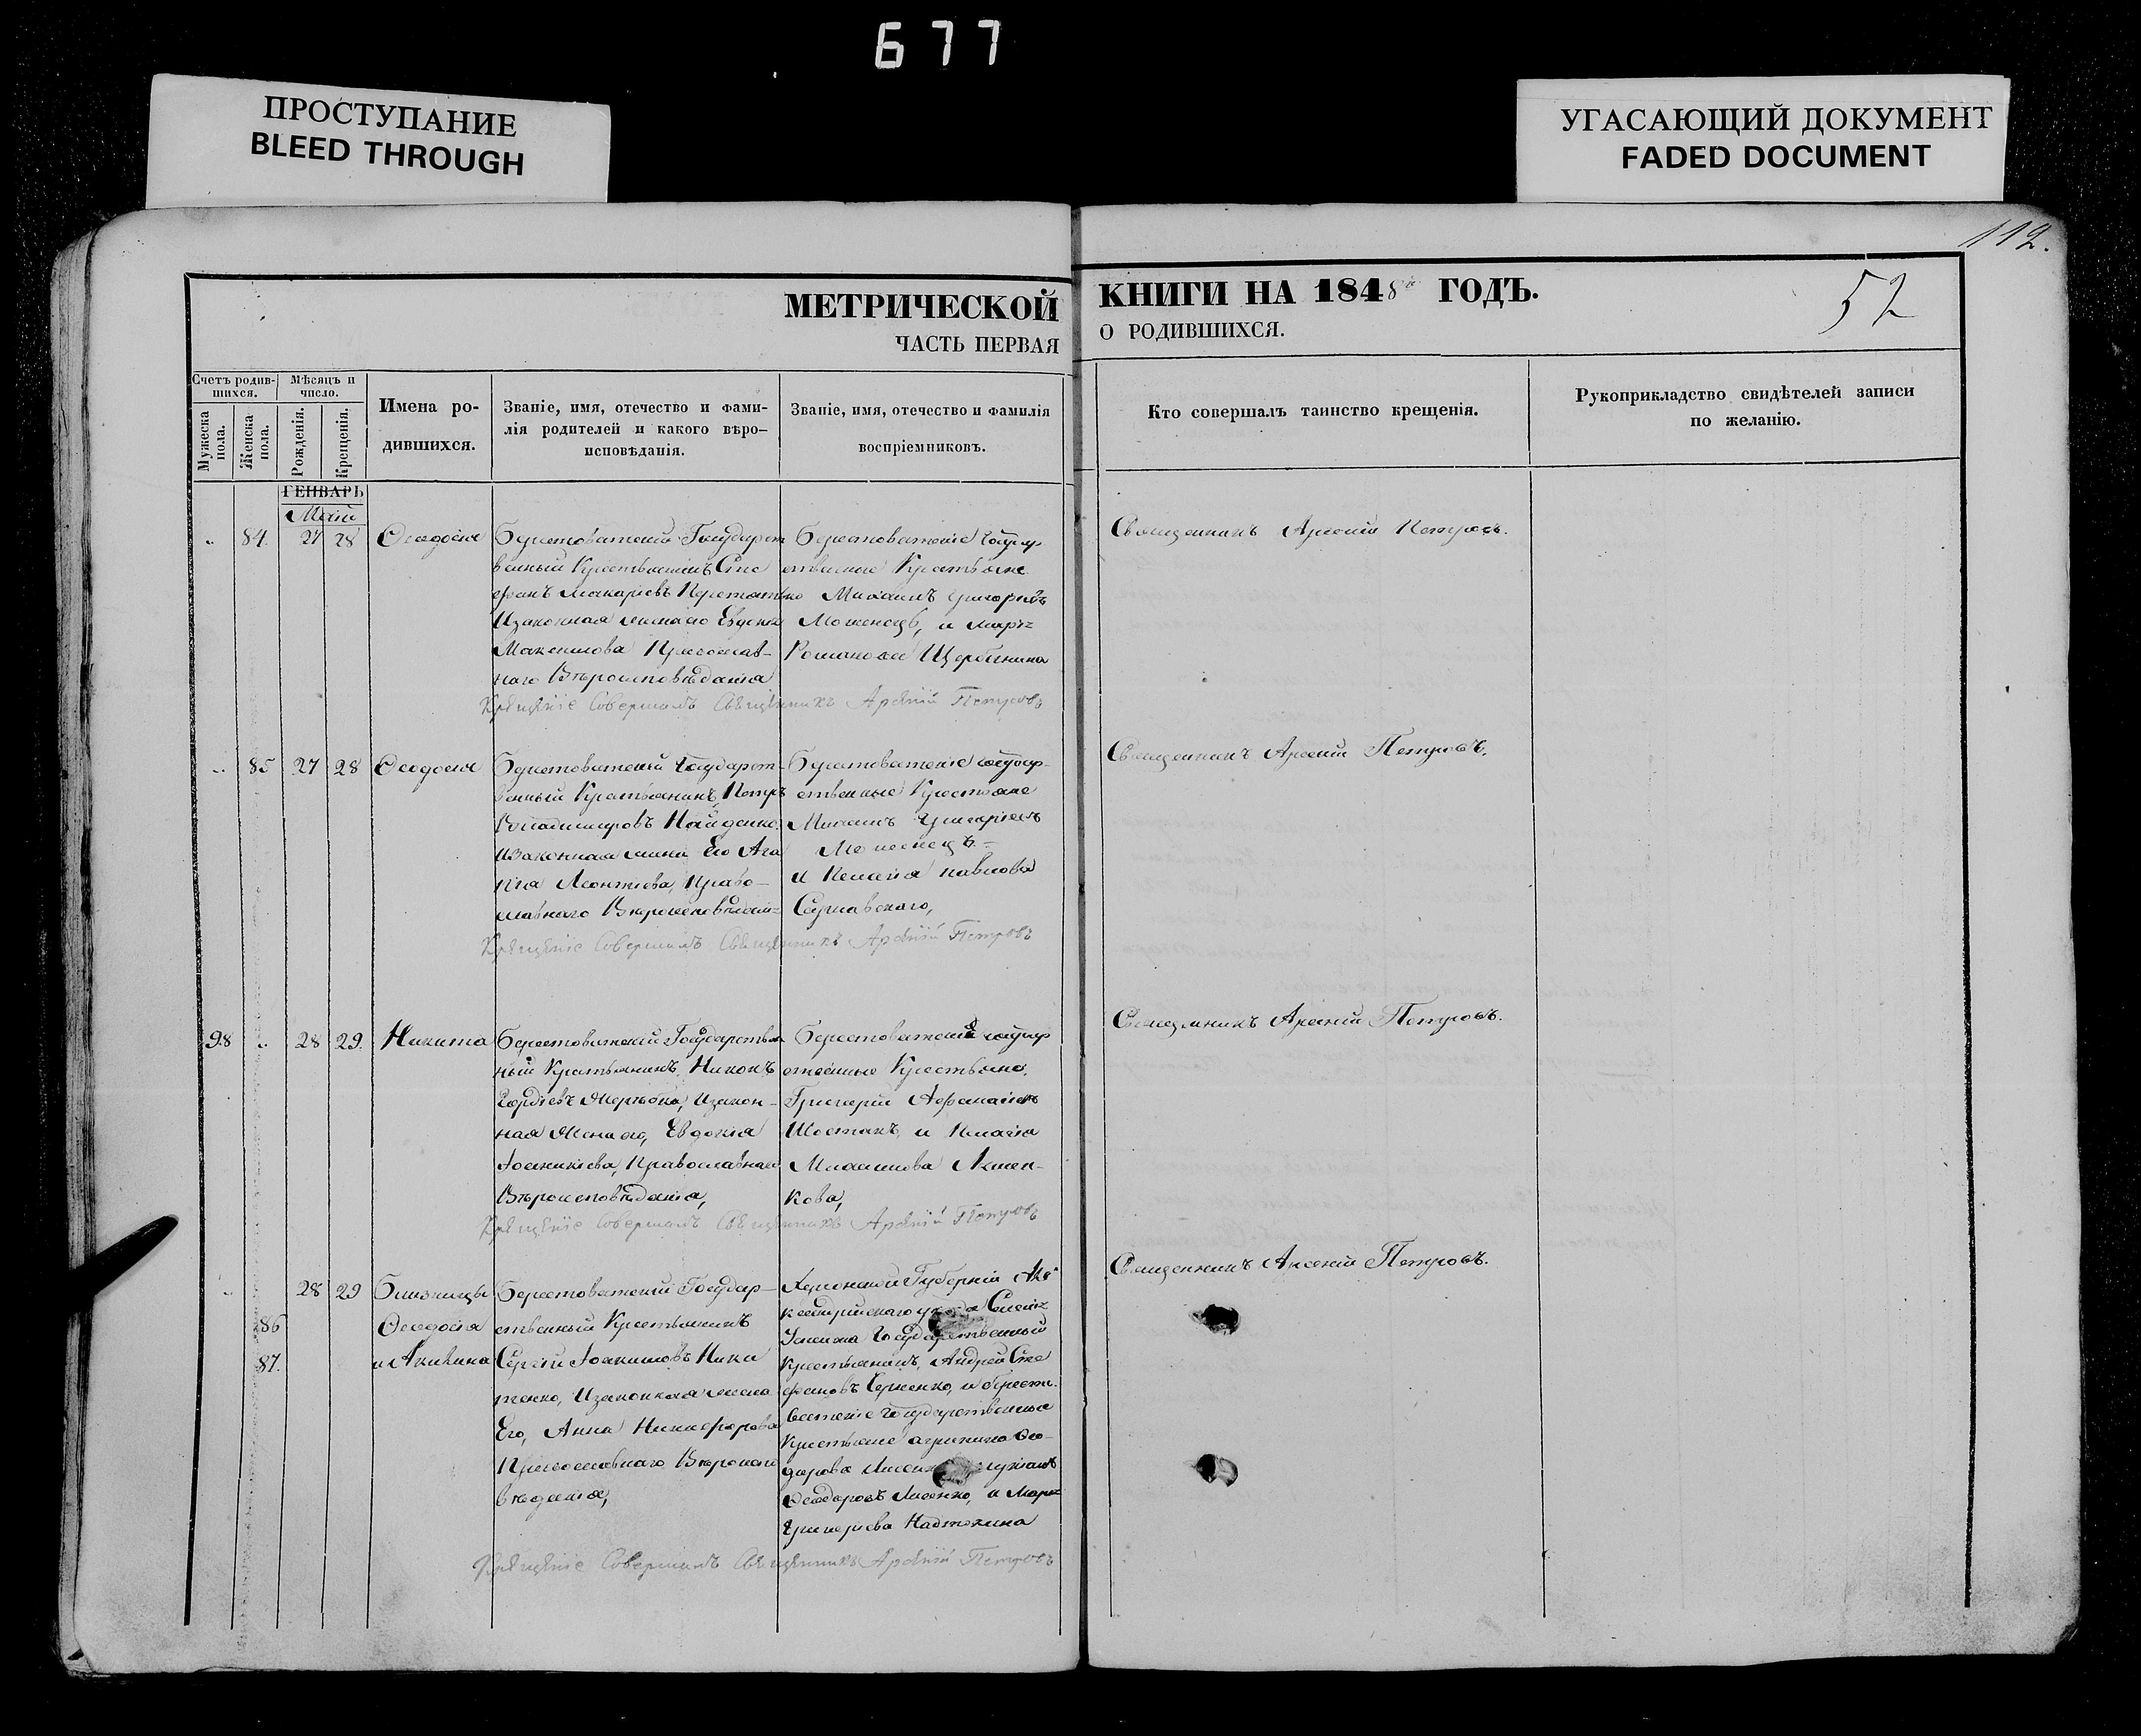 677
ПРОСТУПАНИЕ
BLEED THROUGH
УГАСАЮЩИЙ ДОКУМЕНТ
FADED DOCUMENT
112.
52
МЕТРИЧЕСКОЙ КНИГИ НА 1848й ГОДЪ.
ЧАСТЬ ПЕРВАЯ О РОДИВШИХСЯ.
Счетъ родив-
шихся.
Мужеска пола.
Женска пола.
Мѣсяцъ и
число.
Рожденія.
Крещенія.
Имена ро-
дившихся.
Званіе, имя, отечество и фами-
лія родителей и какого вѣро-
исповѣданія.
Званіе, имя, отечество и фамилія
воспріемниковъ.
Кто совершалъ таинство крещенія.
Рукоприкладство свидѣтелей записи
по желанію.
ГЕНВАРЬ
Маій
84. 27 28 Ѳеодосія
Берестоватский Государст
венный Крестьянинъ Сте
фанъ Макаріевъ
Изаконная жена его
Максимова Православ-
наго Вѣроисповѣданія
Берестоватскіе Государ
ственные Крестьяне
Михаилъ Григорьевъ
и Марѳ
Романова Щербинина
Крещеніе Совершалъ Священникъ Арсеній Петровъ
Священникъ Арсеній Петровъ.
85 27 28 Ѳеодосія
Берестоватский Государст-
венный Крестьянинъ Петръ
Владимировъ Найденко
Изаконная жена Его Ага
пія Леонтіева, Право-
славнаго Вѣроисповѣдані
Берестоватскіе государ-
ственные Крестьяне
Михаилъ Григоріевъ
и Пелагія Павлова
Крещеніе Совершалъ Священникъ Арсеній Петровъ
Священникъ Арсеній Петровъ.
98 28 29. Никита
Берестоватский Государствен
ный Крестьянинъ, Никонъ
Гордіевъ Изакон-
ная Жена его, Евдокія
Іоанникіева, Православнаго
Вѣроисповѣданія,
Берестоватскіе государ
ственные Крестьяне,
Григорій Аѳанасіевъ
Шостакъ, и Пелагія
Михаилова
кова,
Крещеніе Совершалъ Священникъ Арсеній Петровъ
Священникъ Арсеній Петровъ.
28 29 Близнецы
86 Ѳеодосія
87. и Акилина
Берестоватский Государ-
ственный Крестьянинъ
Сергій Іоакимовъ Ники
тенко, Изаконная жена
Его, Анна Никифорова
Православнаго Вѣроиспо
вѣданія,
Херсонской Губерніи Але
ксандрійскаго
Государственный
Крестьянинъ, Андрей Сте
фановъ и Бересто
ватскіе Государственные
Крестьяне Ѳео-
дорова
Ѳеодоровъ Лисенко, и Марѳ
Григоріева
Крещеніе Совершалъ Священникъ Арсеній Петровъ
Священникъ Арсеній Петровъ.